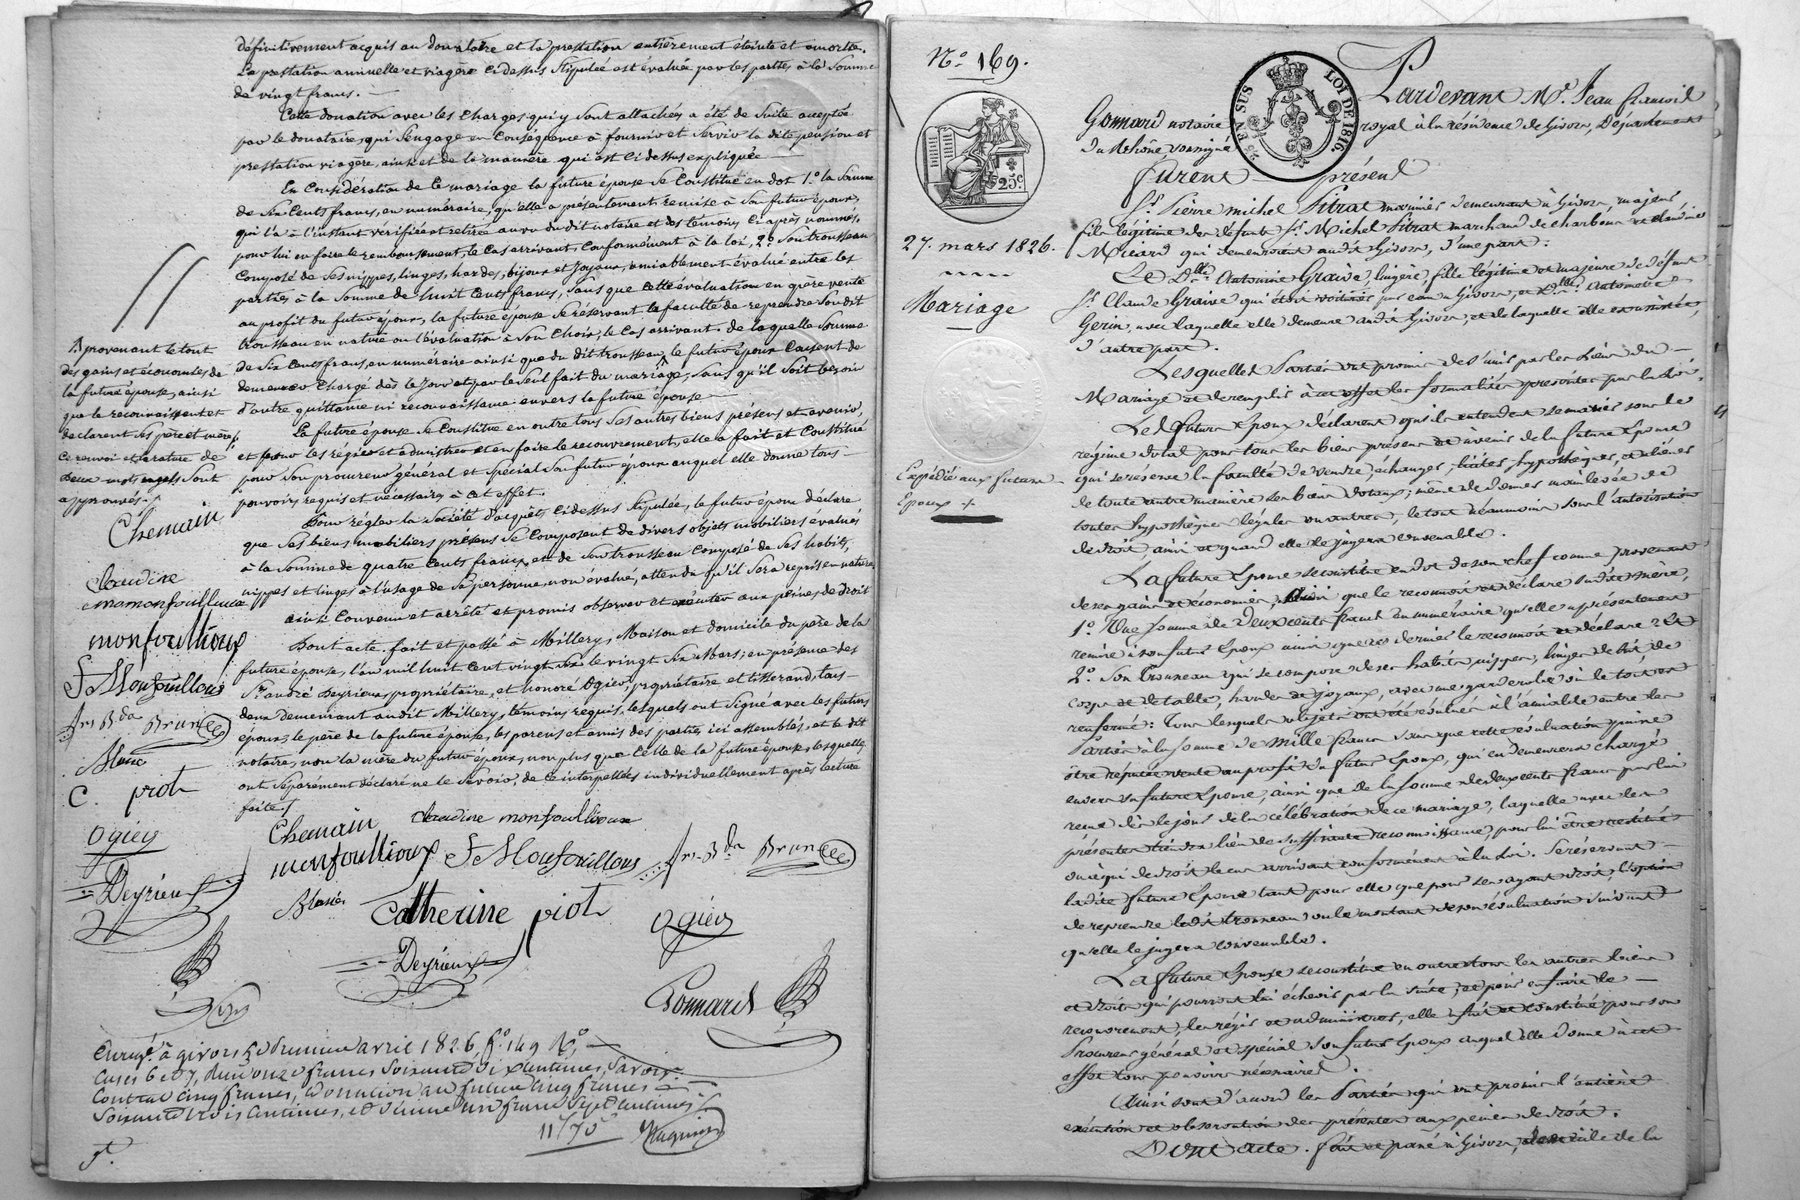 définitivement acquis au donataire et la prestation entièrement éteinte et amortie.
La prestation annuelle et viagère ci dessus stipulée est évaluée par les parties à la somme
de vingt francs.
Cette donation avec les charges qui y sont attachées a été de suite acceptée
par le donataire, qui s'engage en conséquence à fournir et servir la dite pension et
prestation viagère, ainsi et de la manière qui est ci dessus expliquée
En considération de ce mariage la future épouse se constitue en dot 1.o la somme
de six cents francs, en numéraire, qu'elle a présentement remise à son futur époux,
qui l'a à l'instant vérifiée et retirée au vu du dit notaire et des témoins ci après nommés,
pour lui en faire le remboursement, le cas arrivant, conformément à la loi, 2.o Son trousseau
composé de ses nippes, linges, hardes, bijoux et joyaux, amiablement évalué entre les
parties à la somme de huit cents francs, sans que cette évaluation en opère vente
au profit du futur époux, la future épouse se réservant la faculté de reprendre son dit
trousseau en nature ou l'évaluation à son choix, le cas arrivant. de laquelle somme
de six cents francs en numéraire ainsi que du dit trousseau, le futur époux consent de
demeurer chargé dès le jour et par le seul fait du mariage, sans qu'il soit besoin
d'autre quittance ni reconnaissance envers la future épouse
La future épouse se constitue en outre tous ses autres biens présens et avenir,
et pour les régir et administrer et en faire le recouvrement, elle a fait et constitué
pour son procureur général et spécial son futur époux auquel elle donne tous
pouvoirs requis et nécessaires à cet effet.
Pour régler la société d'acquêts ci dessus stipulée, le futur époux déclare
que ses biens mobiliers présens se composent de divers objets mobiliers évalués
à la somme de quatre cents francs, et de son trousseau composé de ses habits,
nippes et linges à l'usage de sa personne, non évalué, attendu qu'il sera repris en nature,
ainsi convenu et arrêté et promis observer et exécuter aux peines de droit
Dont acte, fait et passé à Millery, Maison et domicile du père de la
future épouse, l'an mil huit cent vingt six le vingt six Mars; en présence des
Srs andré Deyrieux, propriétaire, et honoré Ogier, propriétaire et tisserand, tous
deux demeurant au dit Millery, témoins requis, lesquels ont signé avec les futurs
époux, le père de la future épouse, les parens et amis des parties ici assemblés, et le dit
notaire, non la mère du futur époux, non plus que celle de la future épouse, lesquelles
ont séparément déclaré ne le savoir, de ce interpellées individuellement après lecture
faite./
provenant le tout
des gains et économies de
la future épouse, ainsi
que le reconnaissent et
déclarent ses père et mère;
ce renvoi et rature de
deux mots sont
approuvés./
Chemain
claudine
monfoullioux
F Monfouilloux
Blanc
C. piot
Ogier
Deyrieux
Chemain claudine monfoullioux
monfoullioux F Monfouilloux
Catherine piot Ogier
Deyrieux
Gomard
Enregé. à givors le avril 1826 fo. 149 Ro.
cases 6 et 7, Reçu onze francs soixante dix centimes, Savoir:
contrat cinq francs, donation au futur cinq francs
soixante trois centimes,
11/70
No. 169.
25c
27. mars 1826.
Mariage
Expédié aux futurs
Époux +
EN SUS
LOI DE 1816.
Pardevant Me. Jean françois
Gomard notaire royal à la résidence de Givors, Département
du Rhône soussigné
furent présens
Sr. Pierre michel Pitrat marinier demeurant à Givors, majeur
fils légitime de défunt Sr. Michel Pitrat marchand de charbon et de
qui demeuroient audit Givors, d'une part:
Et Dlle. Antoinette Graive, lingère, fille légitime et majeure de défunt
Sr. Claude Graive qui étoit voiturier par eau à Givors, et de
Gerin, avec laquelle elle demeure audit Givors, et de laquelle elle est assistée,
d'autre part.
Lesquelles Parties ont promis de s'unir par les liens du
Mariage et de remplir à cet effet les formalités prescrites par la loi.
Les futurs Époux déclarent qu'ils entendent se marier sous le
régime dotal pour tous les biens présens et à venir de la future Épouse
qui se réserve la faculté de vendre, échanger, traiter, hypothéquer, et aliéner
de toute autre manière ses biens dotaux; même de donner mainlevée de
toutes hypothèques légales ou autres, le tout néanmoins sous l'autorisation
de droit, ainsi et quand elle le jugera convenable.
La future Épouse se constitue en dot de son chef comme provenant
de ses gains et économies, ainsi que le reconnoit et déclare sadite mère,
1o. Une somme de deux cents francs en numéraire qu'elle a présentement
remise à son futur Époux ainsi que ce dernier le reconnoit et déclare Et
2o. Son Trousseau qui se compose de ses habits, nippes, linges de lit de
corps et de table, hardes et joyaux, avec une garderobe où le tout est
renfermé: tous lesquels objets ont été évalués à l'amiable entre les
Parties à la somme de mille francs sans que cette évaluation puisse
être réputée vente au profit du futur Époux, qui en demeurera chargé
envers la future Épouse, ainsi que de la somme de deux cents francs par lui
reçue dès le jour de la célébration de ce mariage, laquelle avec les
présentes tiendra lieu de suffisante reconnoissance, pour lui être restitué
ou à qui de droit le cas arrivant conformément à la Loi. Se réservant
ladite future Épouse tant pour elle que pour ses ayant droit, l'option
de reprendre ledit trousseau ou le montant de son évaluation suivant
qu'elle le jugera convenable.
La future Épouse se constitue en outre tous les autres biens
et droits qui pourront lui échoir par la suite; et pour en faire le
recouvrement, les régir et administrer, elle a fait et constitué pour son
Procureur général et spécial son futur Époux auquel elle donne à cet
effet tous pouvoirs nécessaires.
Ainsi sont d'accord les Parties qui ont promis l'entière
exécution et observation des présentes aux peines de droit.
Dont acte. fait et passé à Givors, domicile de la